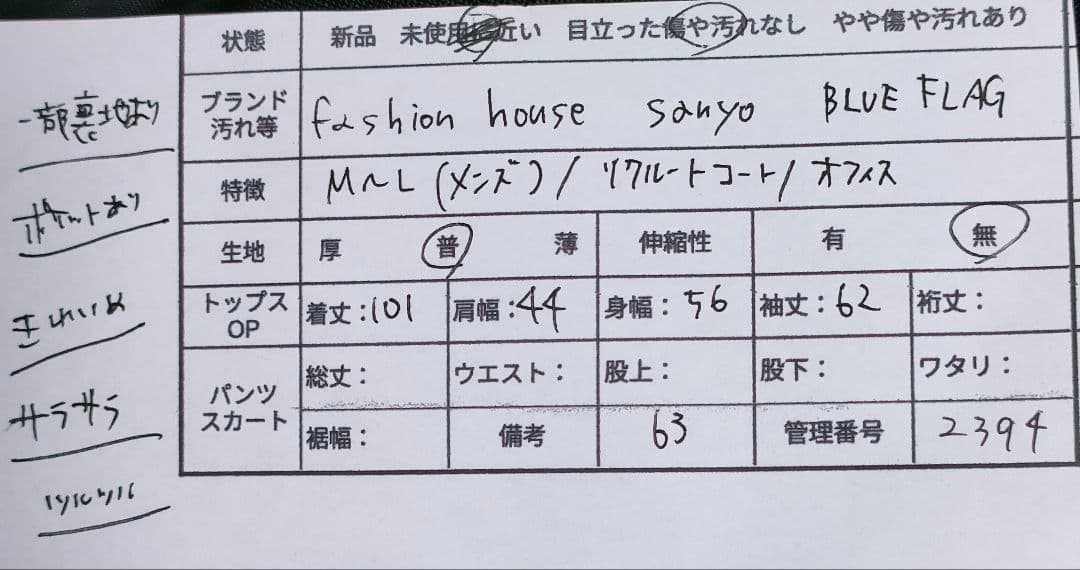 状態 新品 未使用に近い 目立った傷や汚れなし やや傷や汚れあり
ブランド
汚れ等 fashion house sanyo BLUE FLAG
特徴 M～L (メンズ) / リクルートコート / オフィス
生地 厚 普 薄 伸縮性 有 無
トップス
OP 着丈：101 肩幅：44 身幅：56 袖丈：62 裄丈：
パンツ
スカート 総丈： ウエスト： 股上： 股下： ワタリ：
裾幅： 備考 63 管理番号 2394
一部裏地あり
ポケットあり
きれいめ
サラサラ
ツルツル